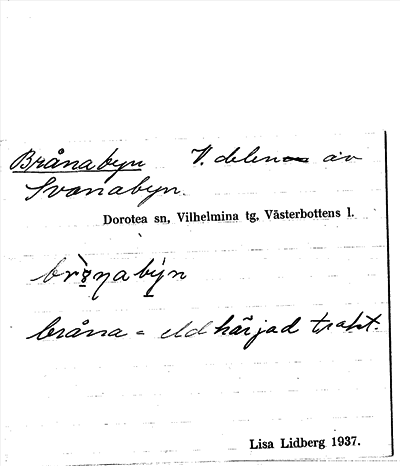 Brånabyn V. delen av
Svanabyn.
Dorotea sn, Vilhelmina tg, Västerbottens l.
bråna = eldhärjad trakt.
Lisa Lidberg 1937.